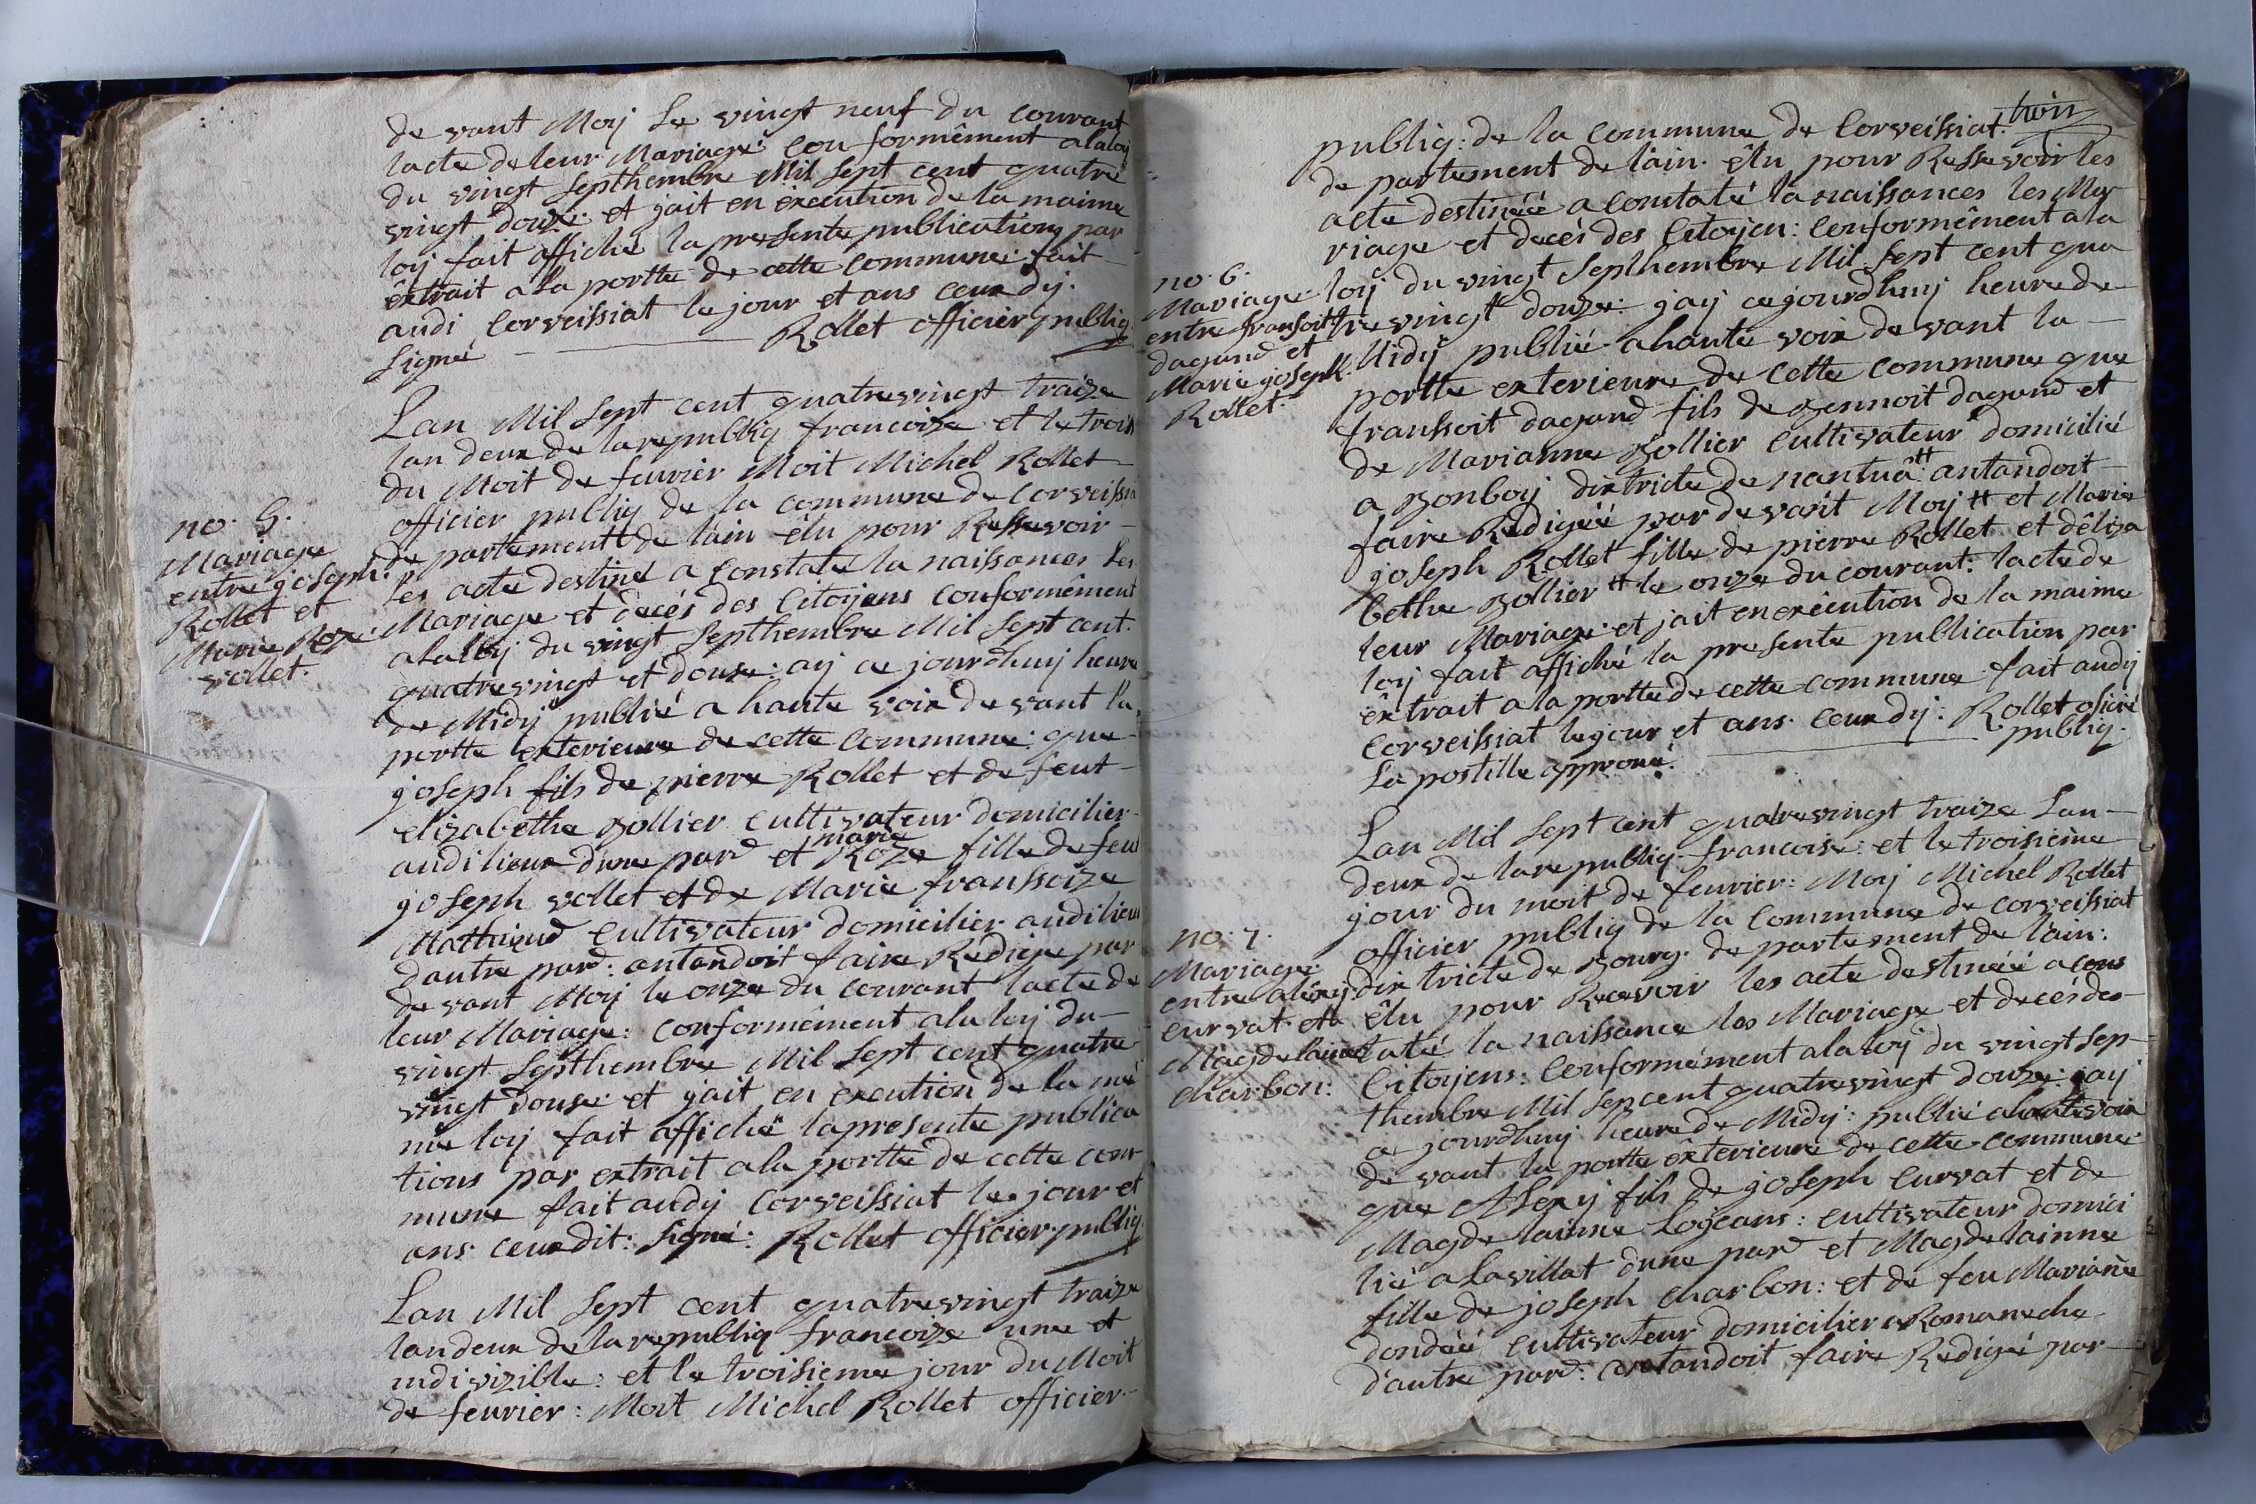 de vant Moy Le vingt neuf du courant
lacte de leur Mariage: conformêment alaloy
du vingt septhembre Mil sept cent quatre
vingt douze: et jait en execution de la maime
loy fait affiché la presente publications par
êxtrait a la portte de cette commune: fait
audi Corveissiat le jour et ans ceux dy.
Signé Rollet officier publiq.
Lan Mil sept cent quatrevingt traize
lan deux de la republiq francoize et le trois
du Moit de feuvrier Moit Michel Rollet
officier publiq de la commune de corveissia
no. 5. de partementt de lain êlu pour Ressevoir
Mariage Les acte destiné a constaté la naissances Les
entre joseph Mariage et decés des Citoyens conformêment
Rollet et alaloy du vingt septhembre Mil sept cent.
Marie Roze quatrevingt et douse: ay ce jourdhuy heure
vollet. de Midy publié a haute voix de vant la
portte exterieure de cette commune: que
joseph fils de pierre Rollet et de feut
elizabethe Bollier cultivateur domicilier
audi lieux dune pard et marie Roze fille de feu
joseph vollet et de Marie franssoize
Mathieud cultivateur domicilier audi lieux
dautre pard: antandoit faire Redige par
de vant Moy le onze du courant lacte de
leur Mariage: conformêment ala loy du
vingt septhembre Mil sept cent quatre
vingt douse: et jait en execution de la mê
me loy fait affiché lapresente publica
tions par extrait ala portte de cette com
mune fait audy Corveissiat le jour et
ans ceux dit: signé: Rollet officier publiq.
Lan Mil sept cent quatrevingt traize
lan deux de la republiq francoize une et
indivizible: et le troisieme jour du Moit
de feuvrier: Moit Michel Rollet officier
trois
publiq: de la commune de Corveissiat.
de partement de lain. êlu pour Ressevoir les
acte destinéé a contaté la naissances les Ma
riage et decés des Citoyen: conformêment a la
no. 6. loy du vingt septhembre Mil sept cent qua
Mariage tre vingt douze: jay ce jourdhuy heure de
entre fransoit Midy publié a haute voix de vant la
dagand et portte exterieure de cette commune que
Marie joseph franssoit dagand fils de Bennoit dagand et
Rollet. de Marianne Bollier cultivateur domicilié
a Bonboy dixtricte de nantuâ tt antandoit
faire Redigéé par de vant Moy tt et Marie
joseph Rollet fille de pierre Rollet et dêliza
bethe Bollier tt le onze du courant: lacte de
leur Mariage: et jait en exêcution de la maime
loy fait affiché la presente publication par
êxtrait a la portte de cette commune fait audy
Corveissiat le jour et ans ceux dy: Rollet oficié
La postille approué. publiq.
Lan Mil sept cent quatrevingt traize Lan
deux de la republiq: francoise: et le troisieme
jour du moit de feuvrier: Moy Michel Rollet
no. 7. officier publiq de la commune de corveissiat
Mariage dixtricte de Bourg. de partement de lain:
entre alêxy êlu pour Recevoir les acte destinéé a cons
curvat et taté la naissance les Mariage et decés des
Magdelainne Citoyens: conformêment alaloy du vingt sep
charbon: thembre Mil sep cent quatrevingt douze: jay
ce jourdhuy heure de Midy: publié ahaute voix
de vant la portte êxterieure de cette commune
que Alexy fils de joseph Curvat et de
Magdelainne Lojeans: cultivateur domici
lié a Lavillat dune pard et Magdelainne
fille de joseph charbon: et de feu Marianê
dondéé cultivateur domicilier a Romaneche
dautre pard: antandoit faire Redigé par